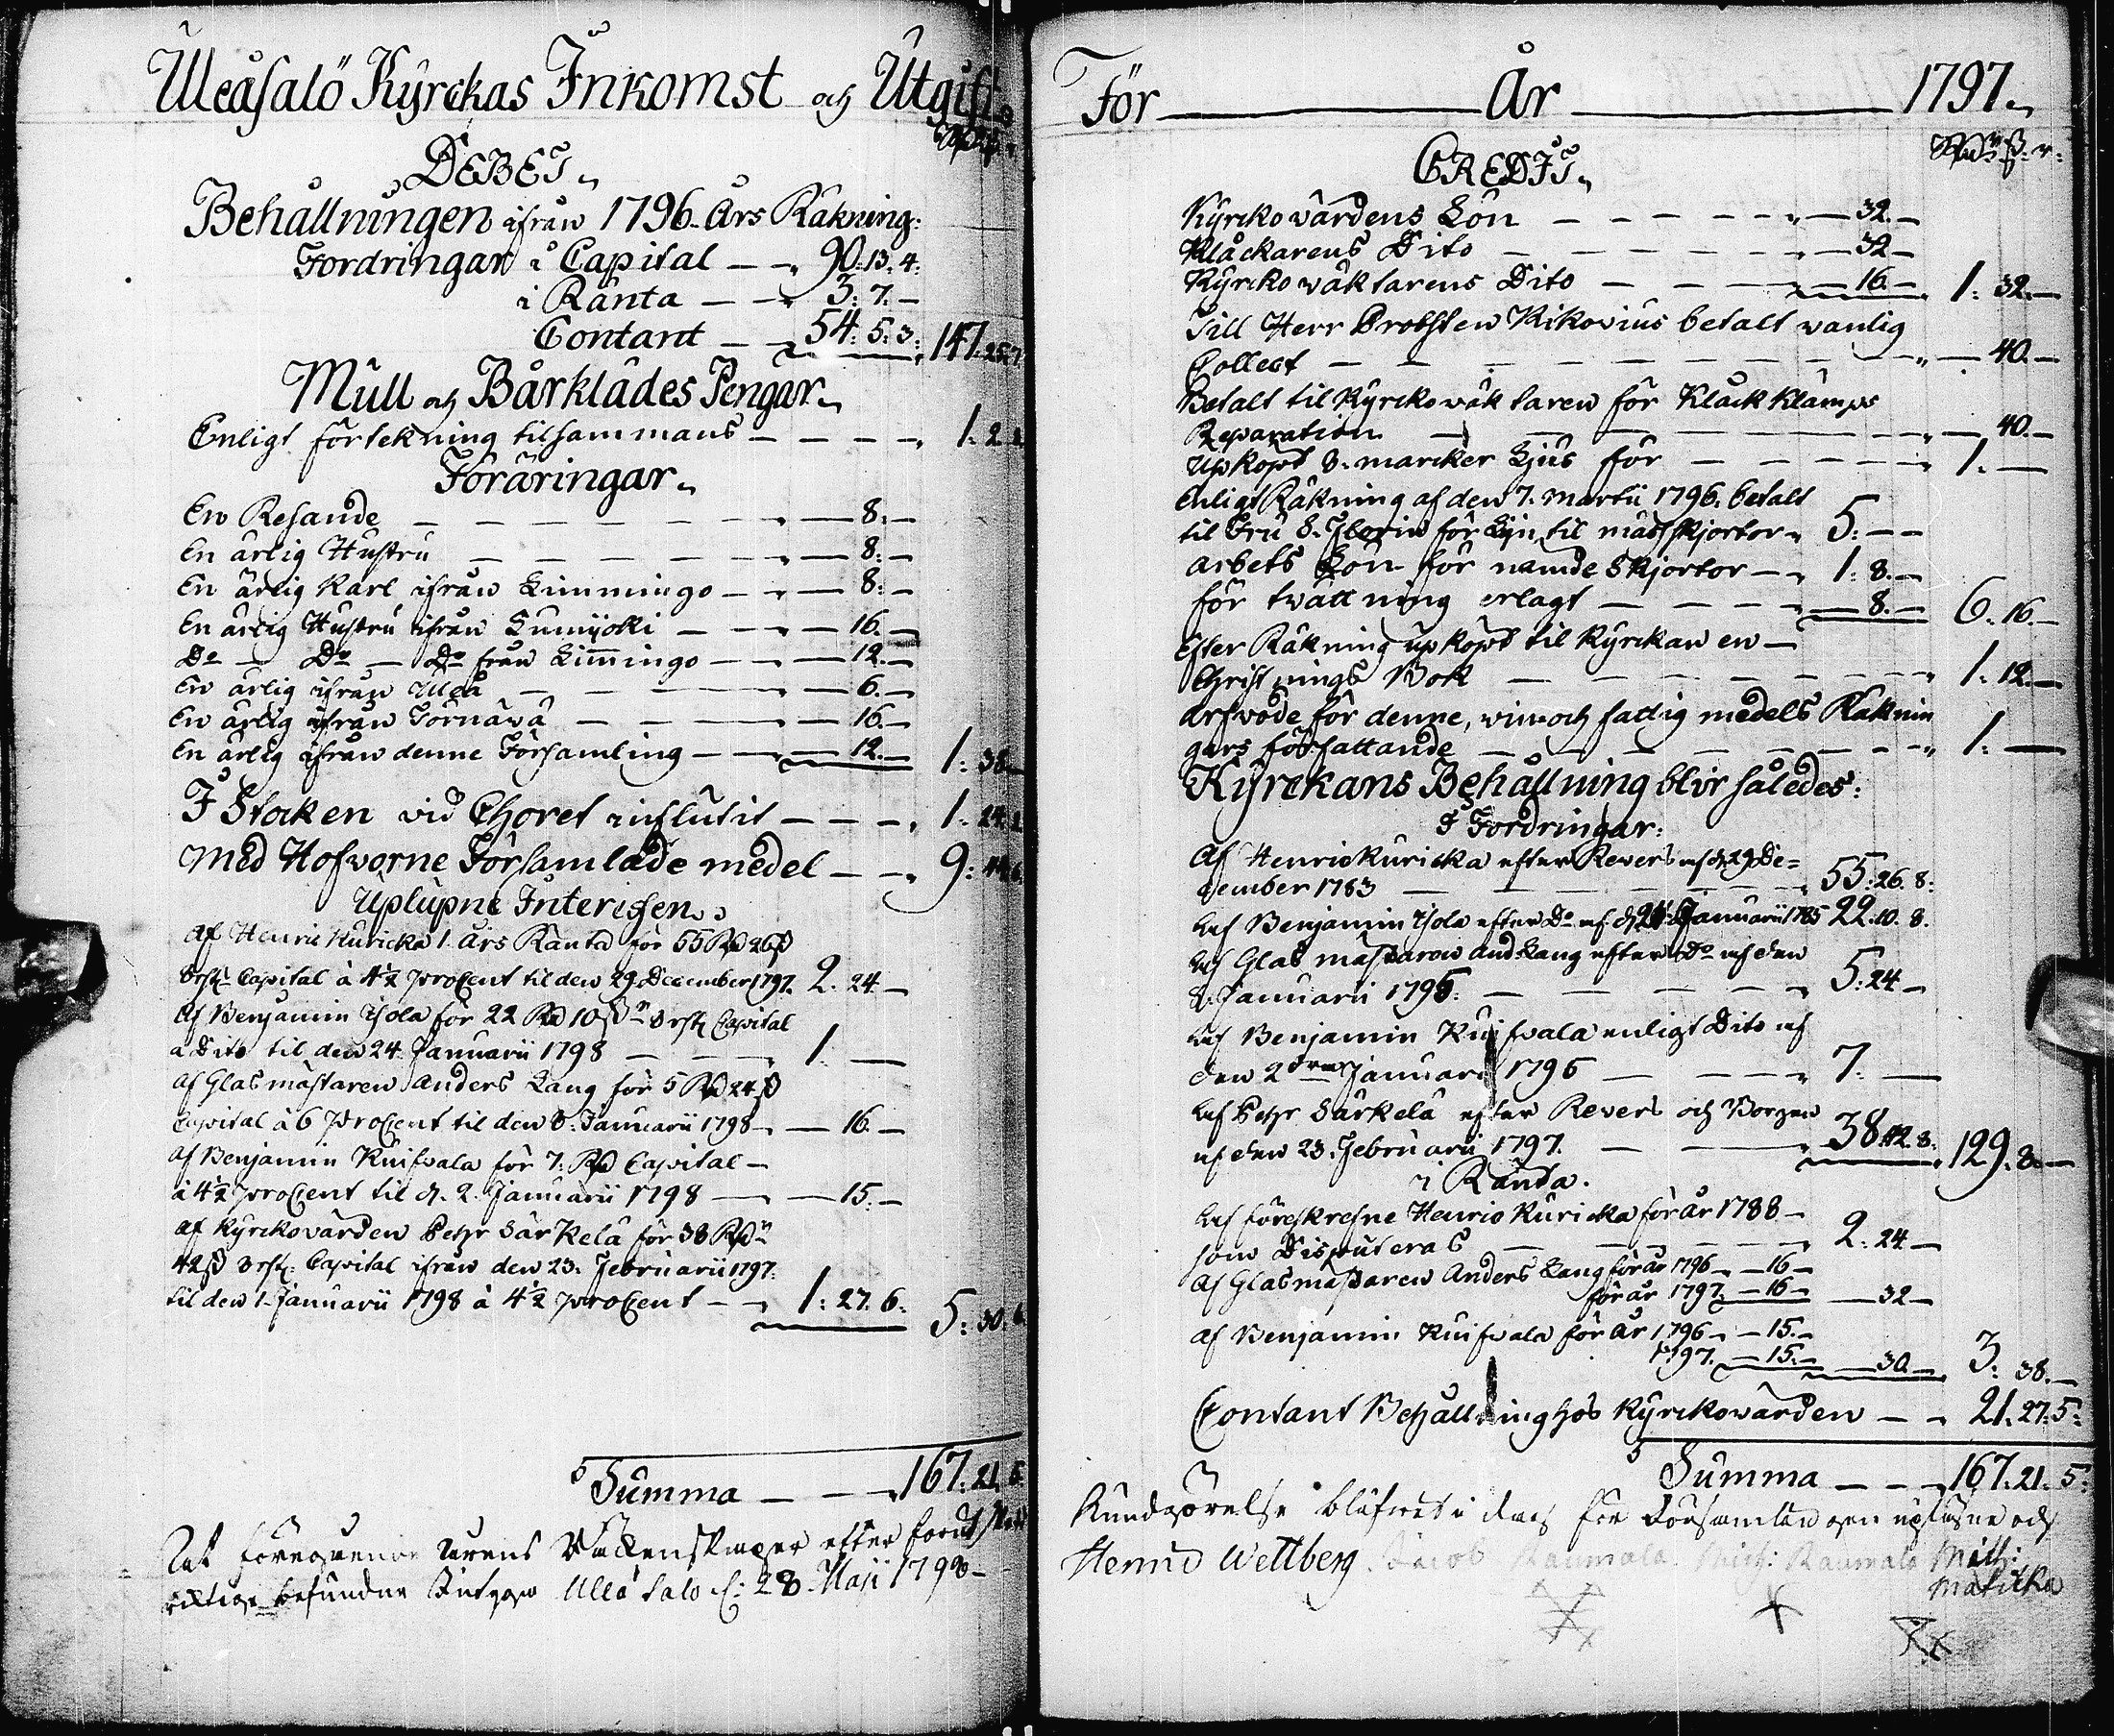 Uleåsalö Kyrckas Inkomst och Utgift
DEBET
Behållningen ifrån 1796 Års Räkning:
Fordringar i Capital — 90: 13. 4:
i Ränta — 3: 7. —
Contant — 54: 5: 3: 147: 25: 7
Mull och Bårklädes Pengar
Enligt förtekning tilsammans — 1: 2
Föräringar
En Resande — 8: —
En ärlig Hustru — 8: —
En ärlig Karl ifrån Limmingo — 8: —
En ärlig Hustru ifrån Lumijoki — 16. —
Do — Do — Do från Limmingo — 12. —
En ärlig ifrån Uleå — 6. —
En ärlig ifrån Törnävä — 16. —
En ärlig ifrån denne Församling — 12. — 1: 38. —
I Stocken vid Choret influtit — 1: 24.
Med Hofvorne Församlade medel — 9: 44. 6
Uplupne Interessen
Af Henric Kuricka 1. Års Ränta för 55 Rd 26 ß
8 rst. Capital à 4½ proCent til den 29. December 1797. 2. 24. —
Af Benjamin Isola för 22 Rd 10 ß 8 rst. Capital
a Dito til den 24. Januarii 1798 — 1. —
Af Glasmästaren Anders Lang för 5 Rd 24 ß
Capital à 6 proCent til den 8. Januarii 1798 — 16. —
Af Benjamin Kuifvala för 7. Rd Capital —
à 4½ proCent til d. 2. Januarii 1798 — 15. —
Af Kyrckovärden Pehr Särkelä för 38 Rd
42 ß 8 rst. Capital ifrån den 23. Februarii 1797.
til den 1. Januarii 1798 à 4½ proCent — 1: 27. 6: 5: 30: 6
Summa — 167. 21. 5
At föregående
riktige befundne Uleå Salo d: 28. Maji 1798 —
För — År — 1797.
Rd ß. r:
CREDIT
Kyrckovärdens Lön — 32. —
Klåckarens Dito — 32 —
Kyrckoväktarens Dito — 16. — 1: 32. —
Till Herr Probsten Rikovius betalt vanlig
Collect — 40. —
Betalt til Kyrckoväktaren för Klåck Klämps
Reparation — 40. —
Upköpt 8. marcker Ljus för — 1. —
Enligt Räkning af den 7. Martii 1796. betalt
til Fru för Lijn til mässkjortor 5: — —
Arbets Lön för nämde Skjortor — 1: 8. —
för tvättning erlagt — 8. — 6. 16. —
Efter Räkning upköpt til Kyrckan en —
Christnings Bok — 1. 12. —
Arfvode för denne, vin och fattig medels Räknin
gars författande — 1. —
Kyrckans Behållning blir således:
I Fordringar:
Af Henric Kuricka efter Revers af d. 29 De=
cember 1783 — 55: 26. 8:
Af Benjamin Isola efter Do af d. 24 Januarii 1785 22. 10. 8.
Af Glas mästaren And. Lang efter Do af den
8. Januarii 1795: — 5: 24 —
Af Benjamin Kuifvala enligt Dito af
den 2dra Januarii 1796 — 7. —
Af Pehr Särkelä efter Revers och Borgen
af den 23. Februarii 1797. — 38. 42. 8. 129. 8. —
i Ränta.
Af föreskrefne Henric Kuricka för år 1788 —
som Disputeras — 2. 24. —
Af Glasmästaren Anders Lang för år 1796 — 16 —
för år 1797. — 16 — 32 —
Af Benjamin Kuifvala för År 1796 — 15. —
1797. — 15. — 30. — 3. 38. —
Contant Behållning hos Kyrckovärden — 21. 27: 5:
Summa — 167. 21. 5:
Kundgörelse blifvit i dag för Församlingen upläsne och
Henric Wettberg Jacob Raumala Mich: Raumala Math:
Matilka